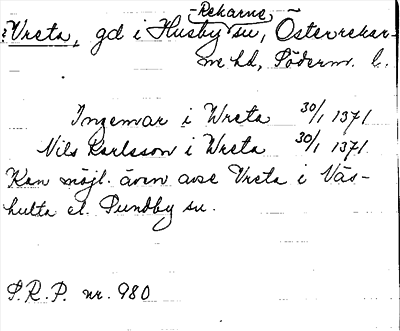 -Rekarne
?Vreta, gd i Husby su, Österrekar-
ne hd, Söderm. l.
Ingemar i Wreta 30/1 1371
Nils Karlsson i Wreta 30/1 1371
Kan möjl. även avse Vreta i Väs-
hulta el. Sundby su.
S.R.P. nr. 980